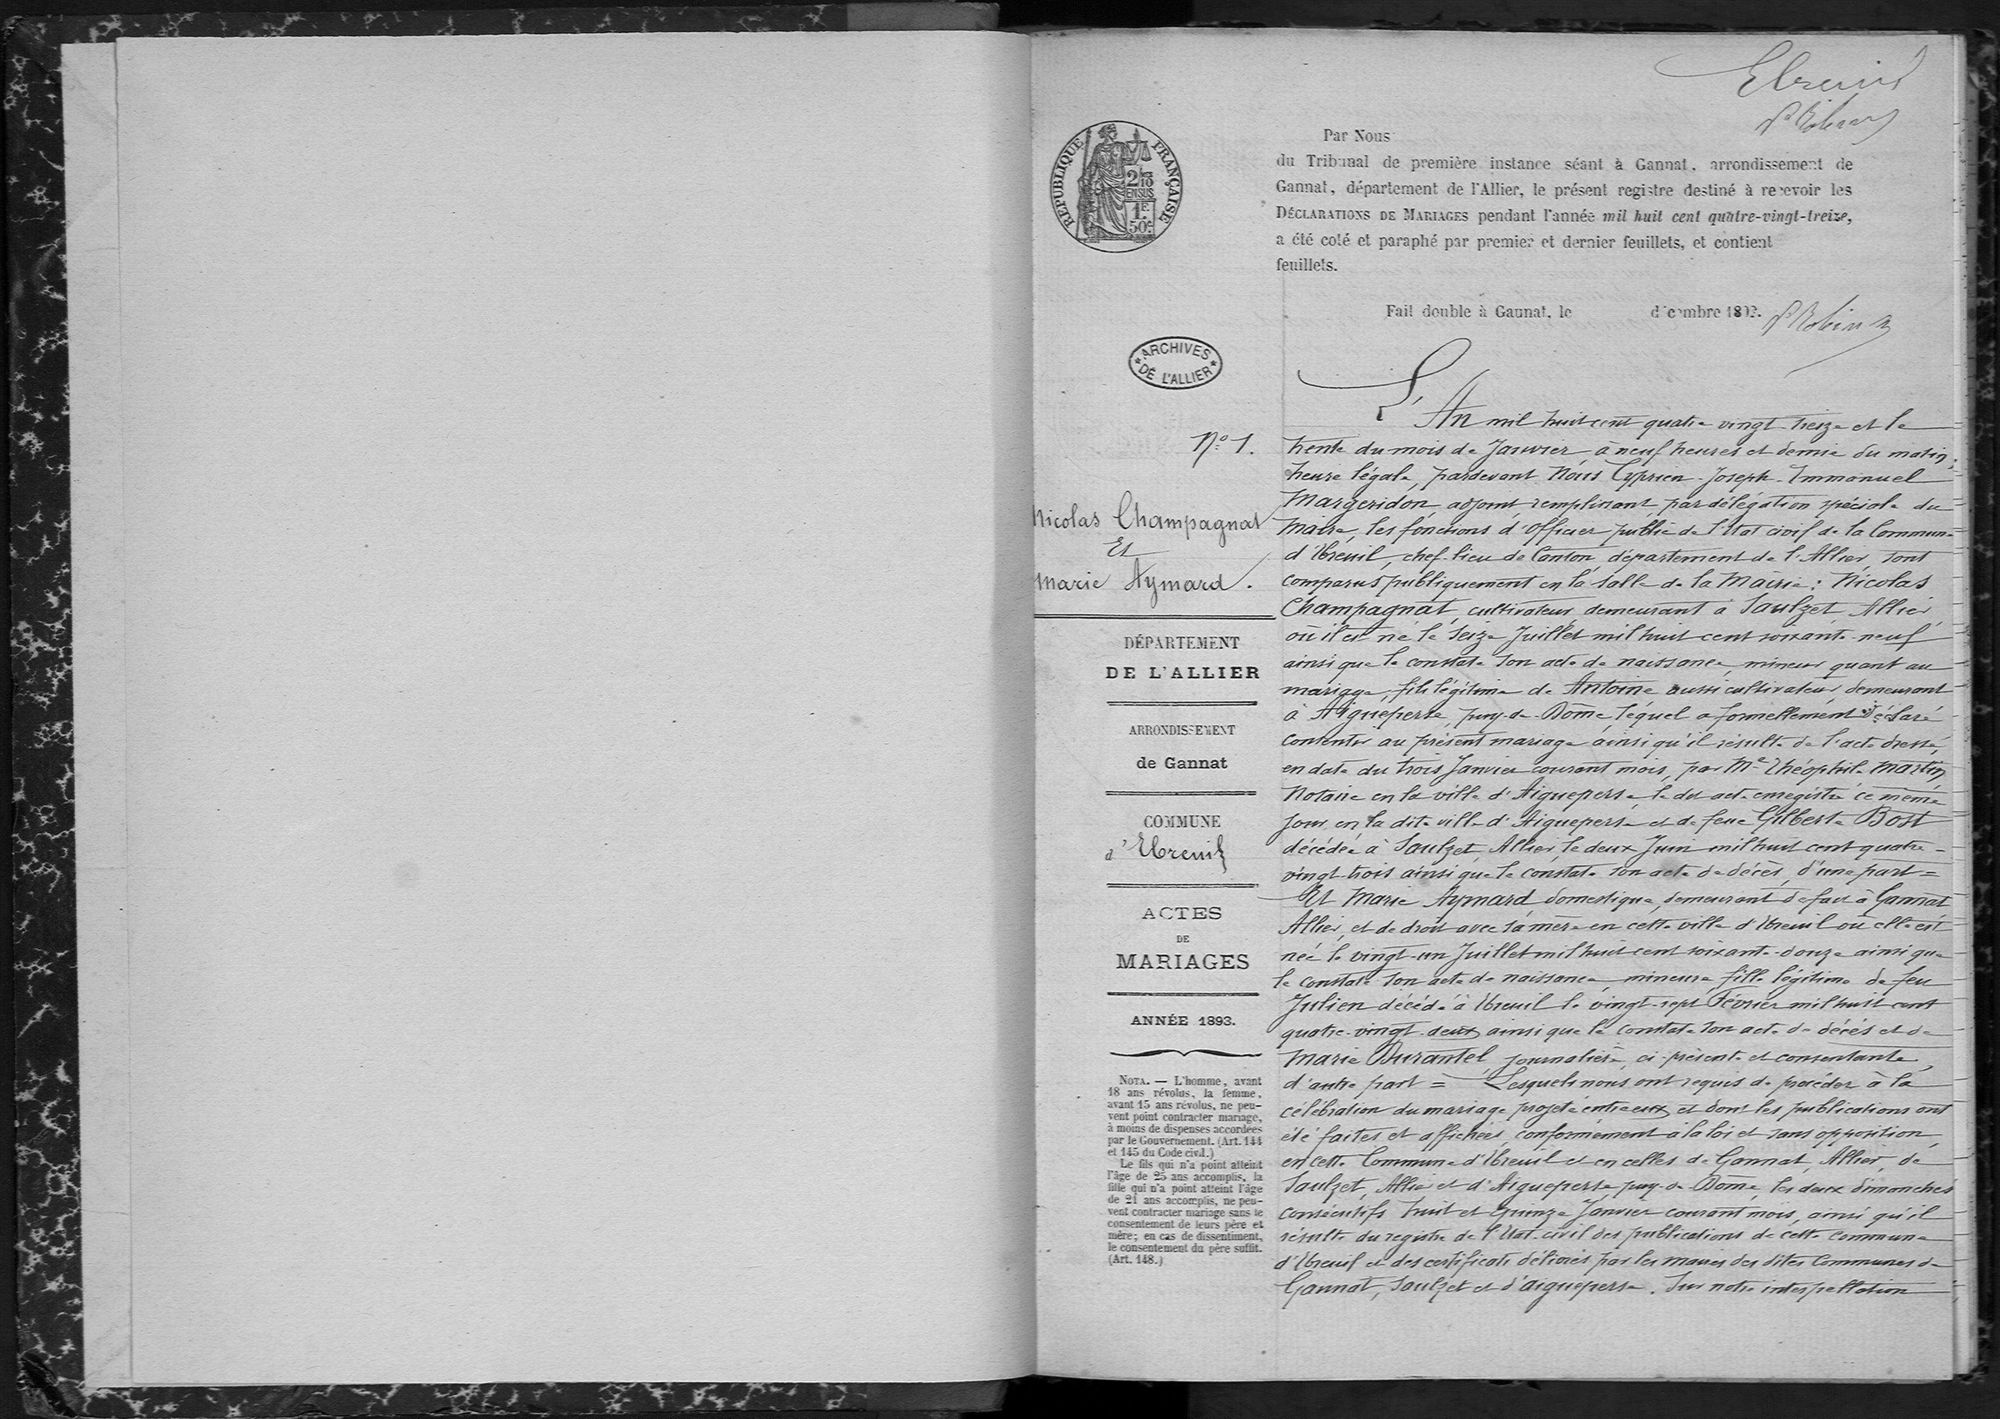 Ebreuil
Par Nous
du Tribunal de première instance séant à Gannat, arrondissement de
Gannat, département de l'Allier, le présent registre destiné à recevoir les
DÉCLARATIONS DE MARIAGES pendant l'année mil huit cent quatre-vingt-treize,
a été coté et paraphé par premier et dernier feuillets, et contient
feuillets.
Fait double à Gannat, le décembre 1892.
RÉPUBLIQUE FRANÇAISE
2/10
EN SUS
1F
50c
ARCHIVES
DE L'ALLIER
N° 1.
Nicolas Champagnat
Et
Marie Aymard.
DÉPARTEMENT
DE L'ALLIER
ARRONDISSEMENT
de Gannat
COMMUNE
d'Ebreuil
ACTES
DE
MARIAGES
ANNÉE 1893.
NOTA. — L'homme, avant
18 ans révolus, la femme,
avant 15 ans révolus, ne peu-
vent point contracter mariage,
à moins de dispenses accordées
par le Gouvernement. (Art. 144
et 145 du Code civil.)
Le fils qui n'a point atteint
l'âge de 25 ans accomplis, la
fille qui n'a point atteint l'âge
de 21 ans accomplis, ne peu-
vent contracter mariage sans le
consentement de leurs père et
mère; en cas de dissentiment,
le consentement du père suffit.
(Art. 148.)
L'An mil huit cent quatre vingt treize et le
trente du mois de Janvier à neuf heures et demie du matin,
heure légale, pardevant Nous Cyprien Joseph Immanuel
Margeridon, adjoint remplissant, par délégation spéciale du
Maire, les fonctions d'Officier public de l'Etat civil de la Commune
d'Ebreuil, chef-lieu de Canton, département de l'Allier, sont
comparus publiquement en la salle de la Mairie : Nicolas
Champagnat, cultivateur, demeurant à Saulzet, Allier,
où il est né le Seize Juillet mil huit cent soixante-neuf
ainsi que le constate son acte de naissance, mineur quant au
mariage, fils légitime de Antoine aussi cultivateur demeurant
à Aigueperse, puy-de-Dôme, lequel a formellement déclaré
consentir au présent mariage ainsi qu'il résulte de l'acte dressé,
en date du trois Janvier courant mois, par Me Théophile Martin,
Notaire en la ville d'Aigueperse, le dit acte enregistré ce même
jour, en la dite ville d'Aigueperse et de feue Gilberte Bost
décédée à Saulzet, Allier, le deux Juin mil huit cent quatre-
vingt-trois ainsi que le constate son acte de décès, d'une part =
Et Marie Aymard domestique, demeurant de fait à Gannat
Allier, et de droit avec sa mère en cette ville d'Ebreuil où elle est
née le vingt-un Juillet mil huit cent soixante-douze ainsi que
le constate son acte de naissance, mineure fille légitime de feu
Julien décédé à Ebreuil le vingt-sept Février mil huit cent
quatre-vingt-deux ainsi que le constate son acte de décès et de
Marie Durantel, journalière, ci-présente et consentante,
d'autre part = Lesquels nous ont requis de procéder à la
célébration du mariage projeté entre eux et dont les publications ont
été faites et affichées, conformément à la loi et sans opposition,
en cette Commune d'Ebreuil et en celles de Gannat, Allier, de
Saulzet, Allier et d'Aigueperse puy-de-Dôme, les deux dimanches
consécutifs huit et quinze Janvier courant mois, ainsi qu'il
résulte du registre de l'Etat-civil des publications de cette commune
d'Ebreuil et des certificats délivrés par les maires des dites Communes de
Gannat, Saulzet et d'aigueperse. Sur notre interpellation